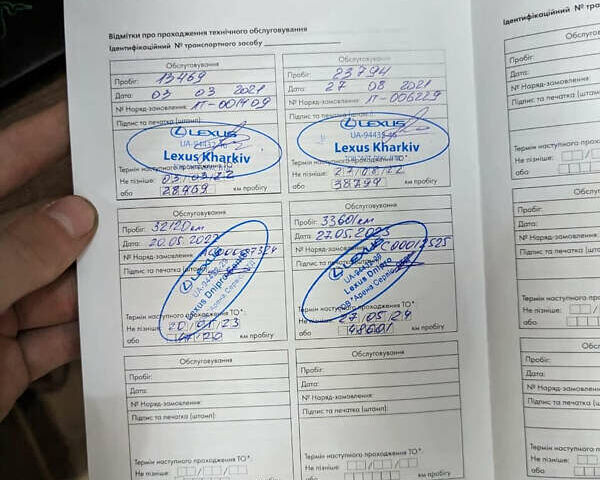 Відмітки про проходження технічного обслуговування
Ідентифікаційний № транспортного засобу
Обслуговування
Пробіг: 13469
Дата: 03 03 2021
№ Наряд-замовлення: ЛТ-001409
Підпис та печатка (штамп):
LEXUS
Lexus Kharkiv
Термін наступного проходження ТО*:
Не пізніше: 03/03/22
або 28469 км пробігу
Обслуговування
Пробіг: 23794
Дата: 27 08 2021
№ Наряд-замовлення: ЛТ-006229
Підпис та печатка (штамп):
LEXUS
UA-94435-46
Lexus Kharkiv
Термін наступного проходження ТО*:
Не пізніше: 27/08/22
або 38794 км пробігу
Обслуговування
Пробіг: 32120км
Дата: 20.05.202
№ Наряд-замовлення:
Підпис та печатка (штамп):
LEXUS
Lexus Dnipro
Термін наступного проходження ТО*:
Не пізніше: 20/01/23
або км пробігу
Обслуговування
Пробіг: 33601км
Дата: 27.05.2023
№ Наряд-замовлення:
Підпис та печатка (штамп):
LEXUS
Lexus Dnipro
Термін наступного проходження ТО*:
Не пізніше: 27/05/24
або 48601 км пробігу
Обслуговування
Пробіг:
Дата:
№ Наряд-замовлення:
Підпис та печатка (штамп):
Термін наступного проходження ТО*:
Не пізніше:
або км пробігу
Обслуговування
Пробіг:
Дата:
№ Наряд-замовлення:
Підпис та печатка (штамп):
Термін наступного проходження ТО*:
Не пізніше:
або км пробігу
Ідентифікаційний № тран
Пробіг:
Дата:
№ Наряд-замовлення:
Підпис та печатка (ш
Термін наступного про
Не пізніше:
або
Пробіг:
Дата:
№ Наряд-замовлення:
Підпис та печатка (
Термін наступного п
Не пізніше:
або
Пробіг:
Дата:
№ Наряд-замовле
Підпис та печатка
Термін наступного
Не пізніше: